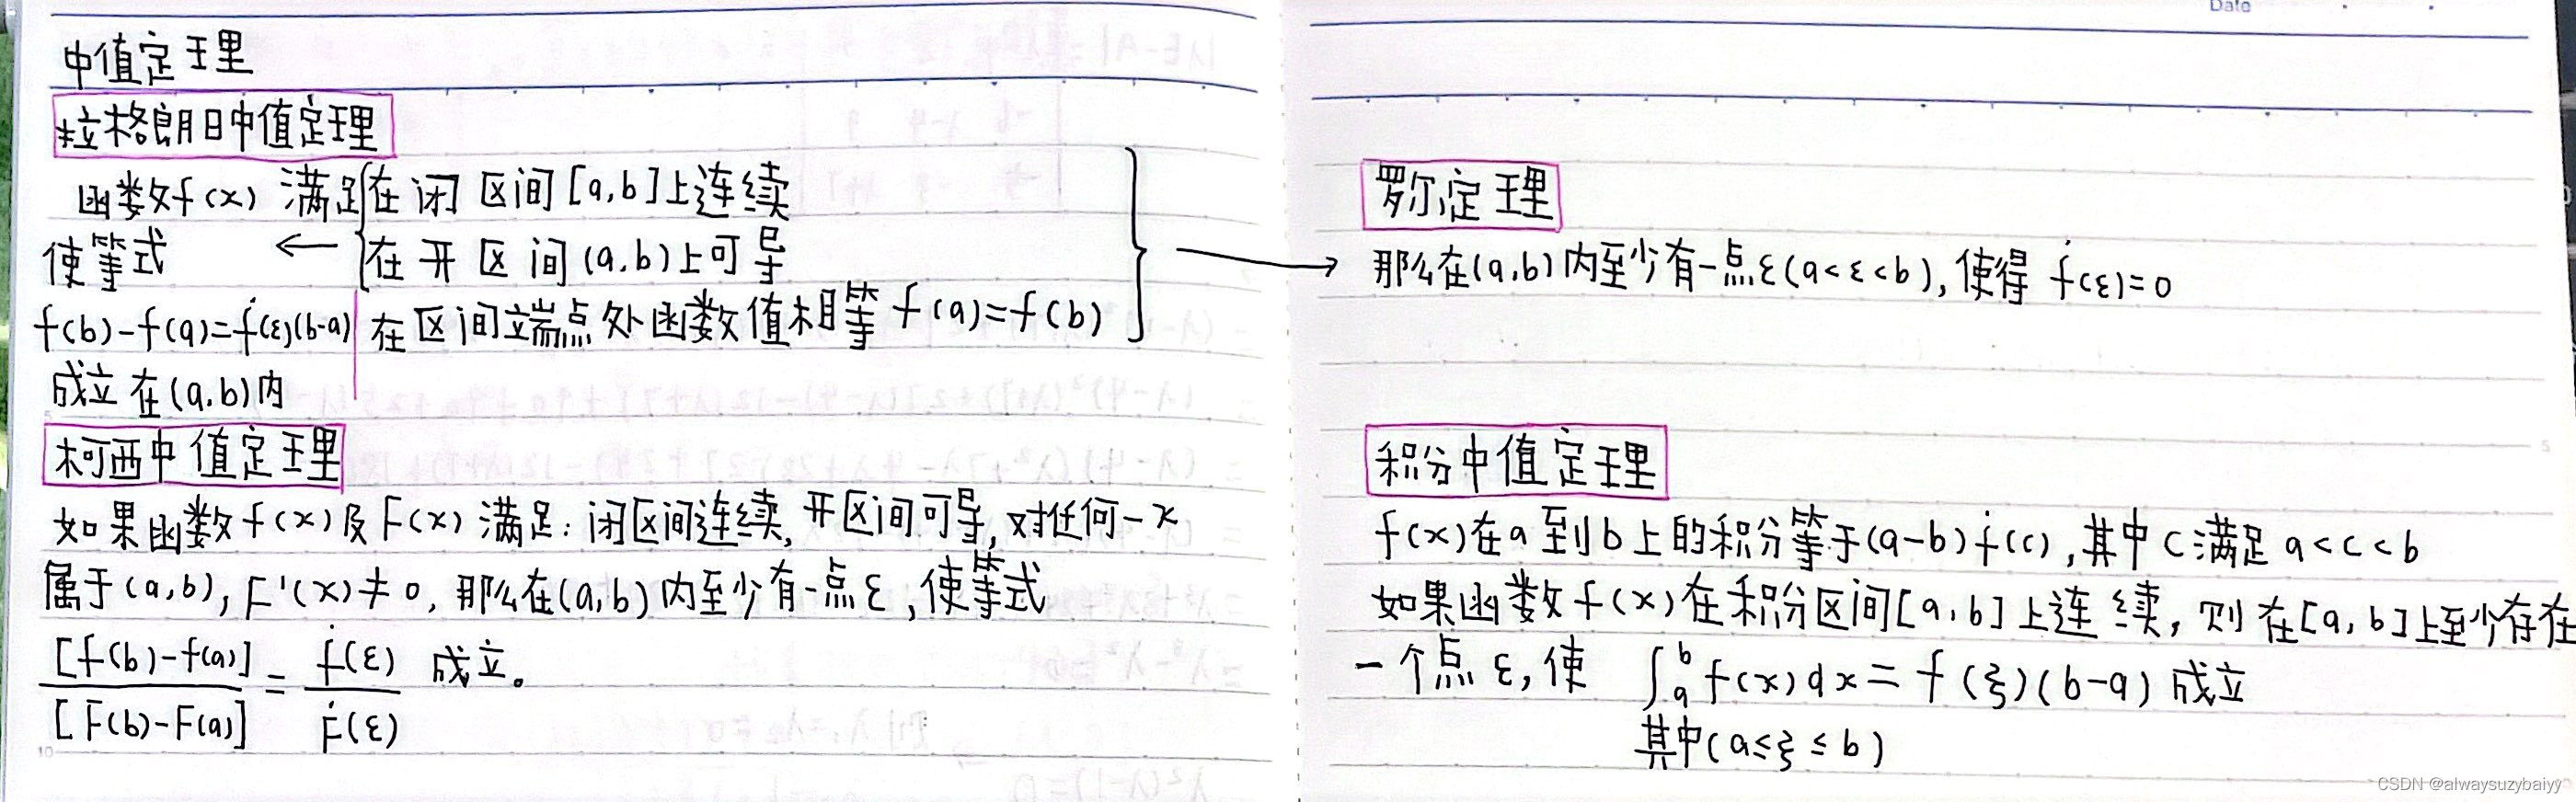 Date
中值定理
拉格朗日中值定理
函数f(x) 满足{在闭区间[a,b]上连续
使等式 ← 在开区间(a,b)上可导
f(b)-f(a)=ḟ(ε)(b-a) 在区间端点处函数值相等 f(a)=f(b)
成立在(a,b)内
→
罗尔定理
那么在(a,b)内至少有一点ε(a<ε<b),使得 ḟ(ε)=0
柯西中值定理
如果函数f(x)及F(x)满足:闭区间连续,开区间可导,对任何一x
属于(a,b),F'(x)≠0,那么在(a,b)内至少有一点ε,使等式
[f(b)-f(a)]/[F(b)-F(a)] = ḟ(ε)/Ḟ(ε) 成立。
积分中值定理
f(x)在a到b上的积分等于(a-b)ḟ(c),其中c满足a<c<b
如果函数f(x)在积分区间[a,b]上连续,则在[a,b]上至少存在
一个点ε,使 ∫ₐᵇ f(x)dx=f(ξ)(b-a)成立
其中(a≤ξ≤b)
5
10
5
CSDN @alwaysuzybaiyy